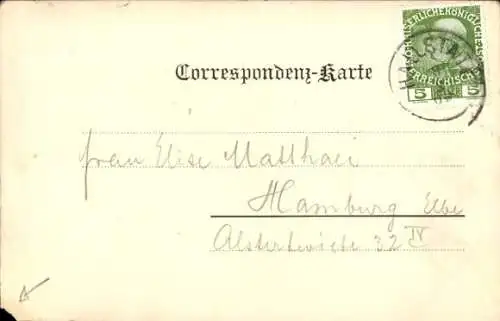 KAISERLICHE KÖNIGLICHE
5 5
HALLSTATT
Correspondenz-Karte
Frau Elise Matthaei
Hamburg Elbe
Alsterterwiete 32 IV